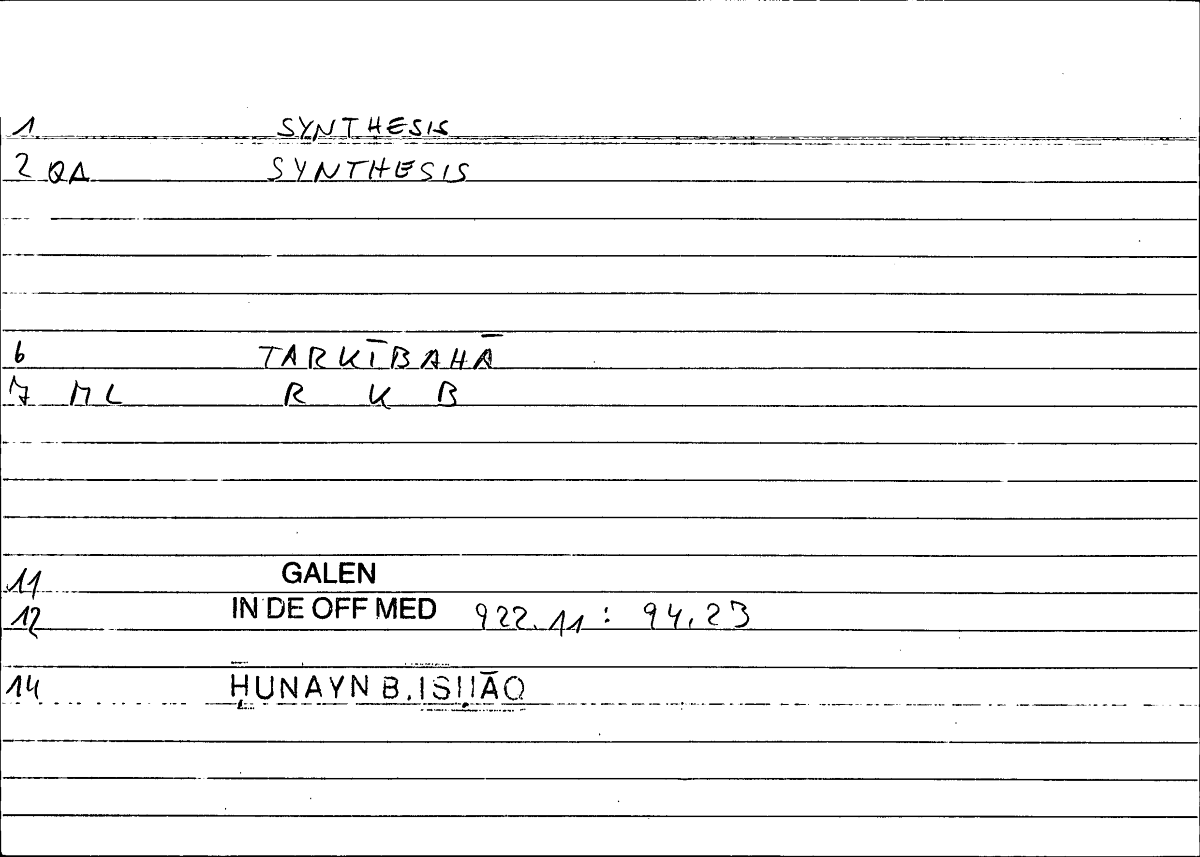 1 SYNTHESIS
2 QA SYNTHESIS
6 TARKĪBAHĀ
7 ML R K B
11 GALEN
12 IN DE OFF MED 922.11 : 94.23
14 ḤUNAYN B. ISḤĀQ